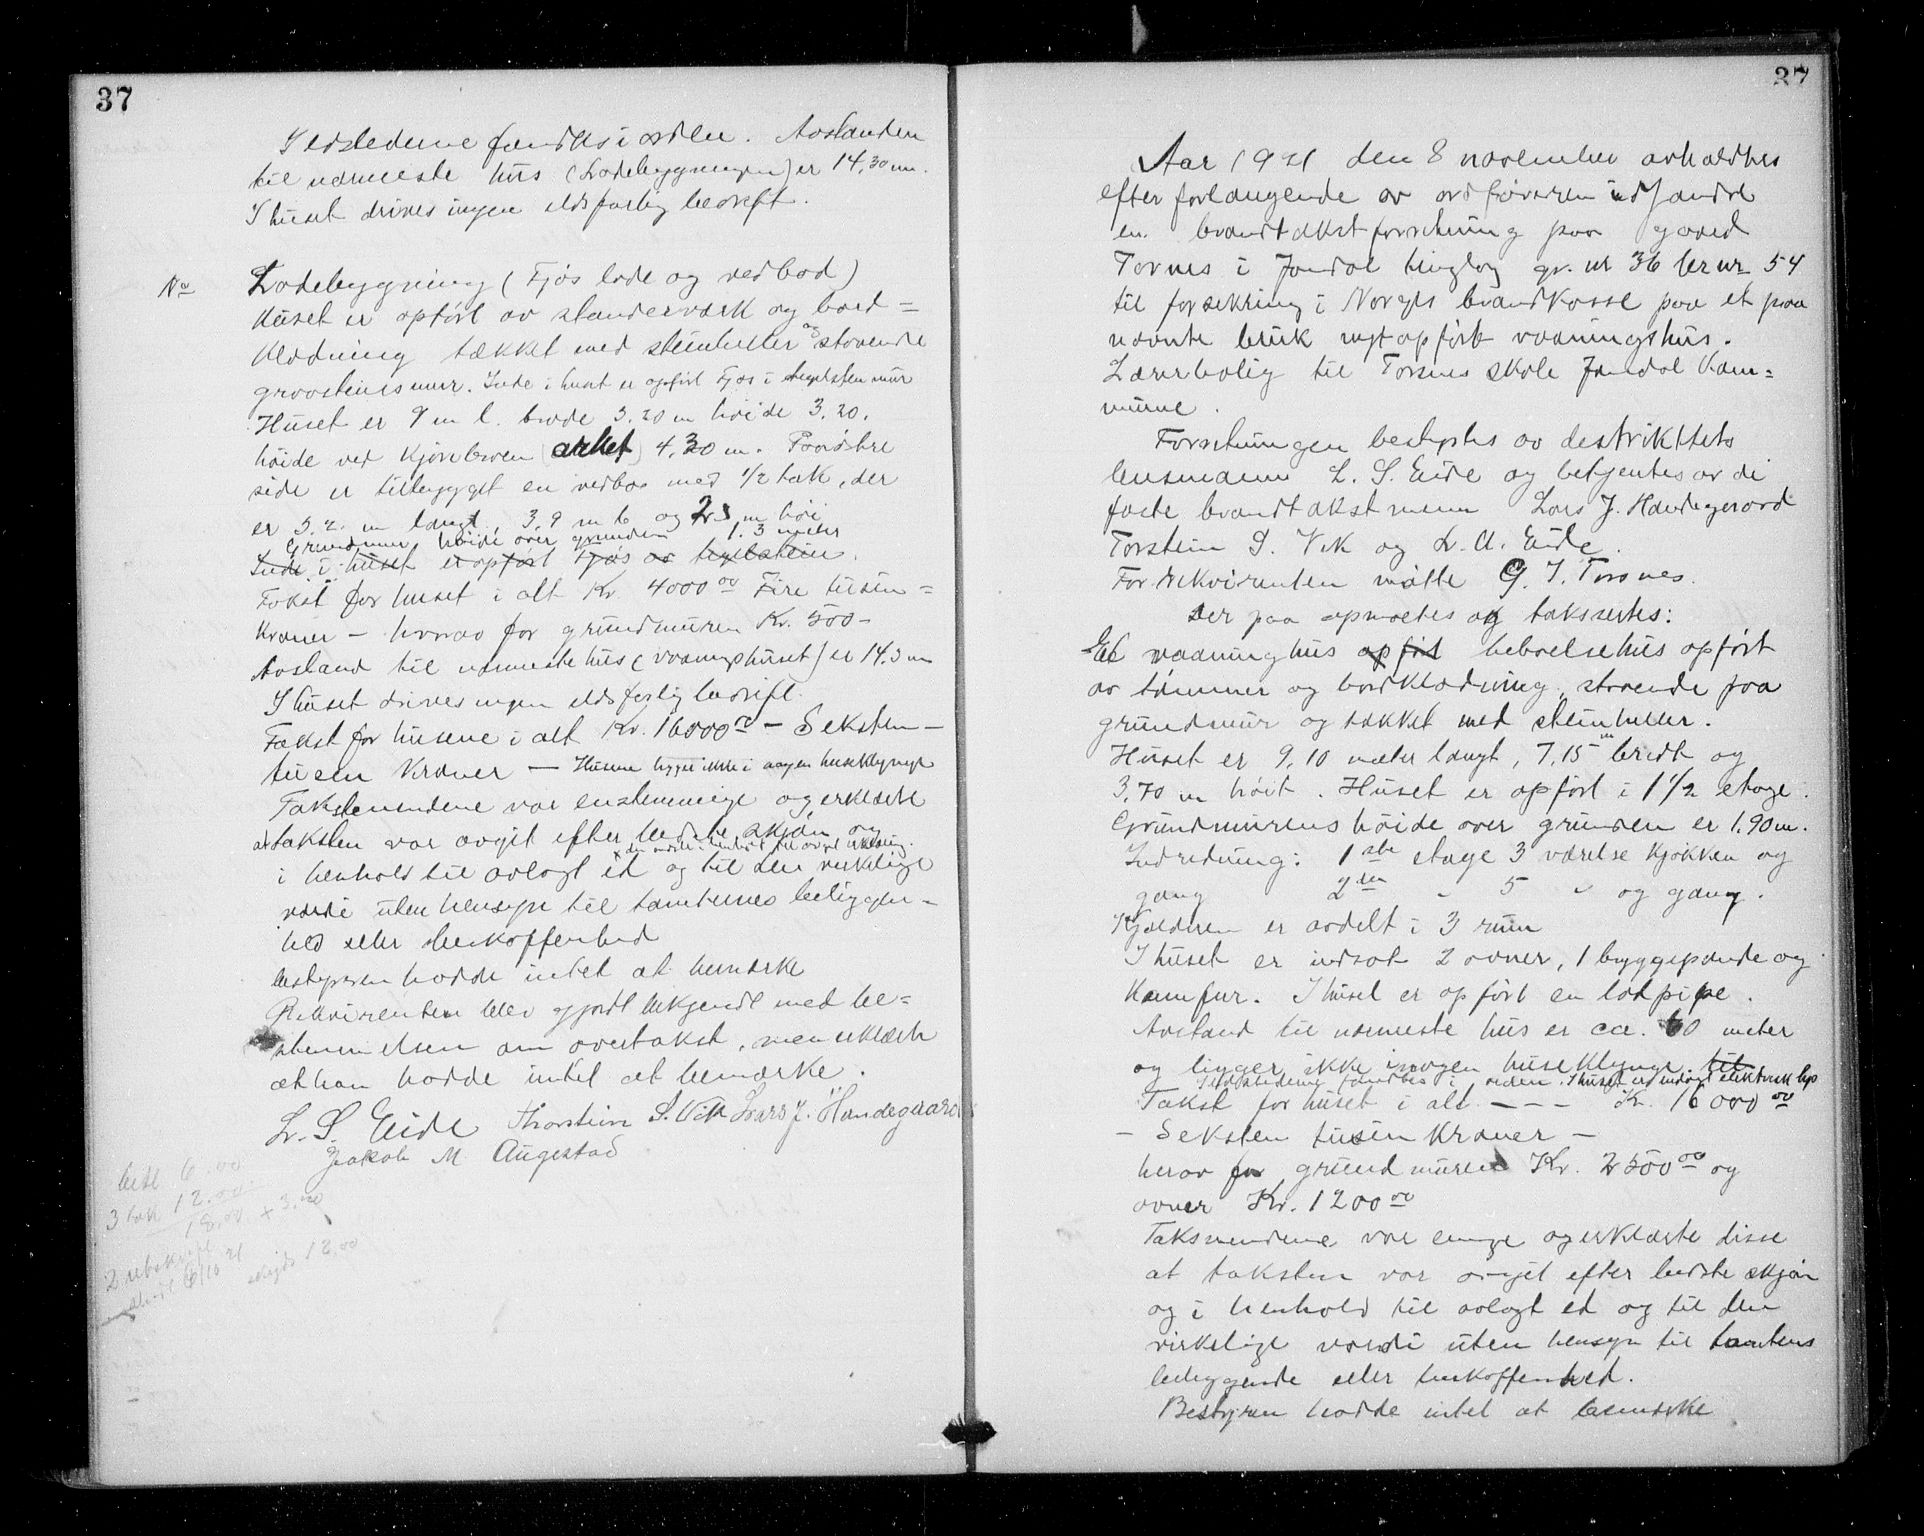 37
Ildstederne fandtes i orden. Avstanden
til nærmeste hus (Lodebygningen) er 14,30 m.
I huset drives ingen ildsfarlig bedrift.
No Lodebygning (Fjøs lode og vedbod)
Huset er opført av standerværk og bord=
klædning tækket med steinheller og staaende
graasteinsmur. Inde i huset er opført Fjøs i teglsten mur
Huset er 9 m l. brede 5.20 m høide 3,20.
høide ved kjørebroen (arket) 4,30 m. Paa østre
side er tilbygget en vedbod med 1/2 tak, der
er 5.2. m langt, 3,9 m b og 2.5 m høi
Grundmur høide over grunden 1.3 meter
Inde i huset er opført Fjøs av teglstein.
Takst for huset i alt Kr. 4000 00 Fire tusen=
Kroner – hvorav for grundmuren Kr. 500–
Avstand til nærmeste hus (vaaningshuset) er 14.3 m
I huset drives ingen ildsfarlig bedrift.
Takst for husene i alt Kr. 16000 00 – Seksten –
tusen Kroner – Husene ligger ikke i nogen huseklynge
Takstmendene var enstemmige og erklærte
at taksten var avgit efter bedste skjøn og
den ene i henhold til avgit erklæring.
i henhold til avlagt ed og til den virkelige
værdi uten hensyn til tomternes beliggen=
hed eller beskaffenhed
bestyreren hadde intet at bemærke
Rekvirenten blev gjordt bekjendt med be=
stemmelsen om overtakst, men erklærte
at han hadde intet at bemærke.
L. S. Eide Thorstein S. Vik Lars J. Handegaard
Jakob M Augestad
best 6.00
3 tak 12.00
18.00 + 3.00
37
Aar 1921 den 8 november avholdtes
efter forlangende av ordføreren i Jondal
en brandtakstforretning paa gaard
Torsnes i Jondal tinglag gr. nr 36 br nr 54
til forsekring i Norges brandkasse paa et paa
nævnte bruk nyt opført vaaningshus.
Lærerbolig til Torsnes skole Jondal Kom=
mune.
Forretningen bestyrtes av destriktets
lensmann L. S. Eide og betjentes av de
faste brandtakstmenn Lars J. Handegaard
Torstein S. Vik og L. A. Eide.
For rekvirenten møtte G. J. Torsnes.
Der paa opmaaltes og taksertes:
Et vaaninghus opført beboelsehus opført
av tømmer og bordklædning, staaende paa
grundmur og tækket med steinheller.
Huset er 9,10 meter langt, 7,15 m bredt og
3,70 m høit. Huset er opført i 1 1/2 etage.
Grundmurens høide over grunden er 1.90 m.
Indredning: 1ste etage 3 værelse kjøkken og
gang 2den " 5 " og gang.
Kjelderen er avdelt i 3 rum
I huset er indsat 2 ovner, 1 bryggepande og
Komfur. I huset er opført en lodpipe.
Avstand til nærmeste hus er ca. 60 meter
og ligger ikke i nogen huseklynge. til
Ildstederne fandtes i orden. I huset er indlagt elektrisk lys
Takst for huset i alt – – – Kr. 16000 00
– Seksten tusen Kroner –
herav for grundmuren Kr. 2500 00 og
ovner Kr. 1200 00
Taksmendene var enige og erklærte disse
at taksten var avgit efter bedste skjøn
og i henhold til avlagt ed og til den
virkelige værdi uten hensyn til tomtens
beliggende eller beskaffenhed.
Bestyren hadde intet at bemærke